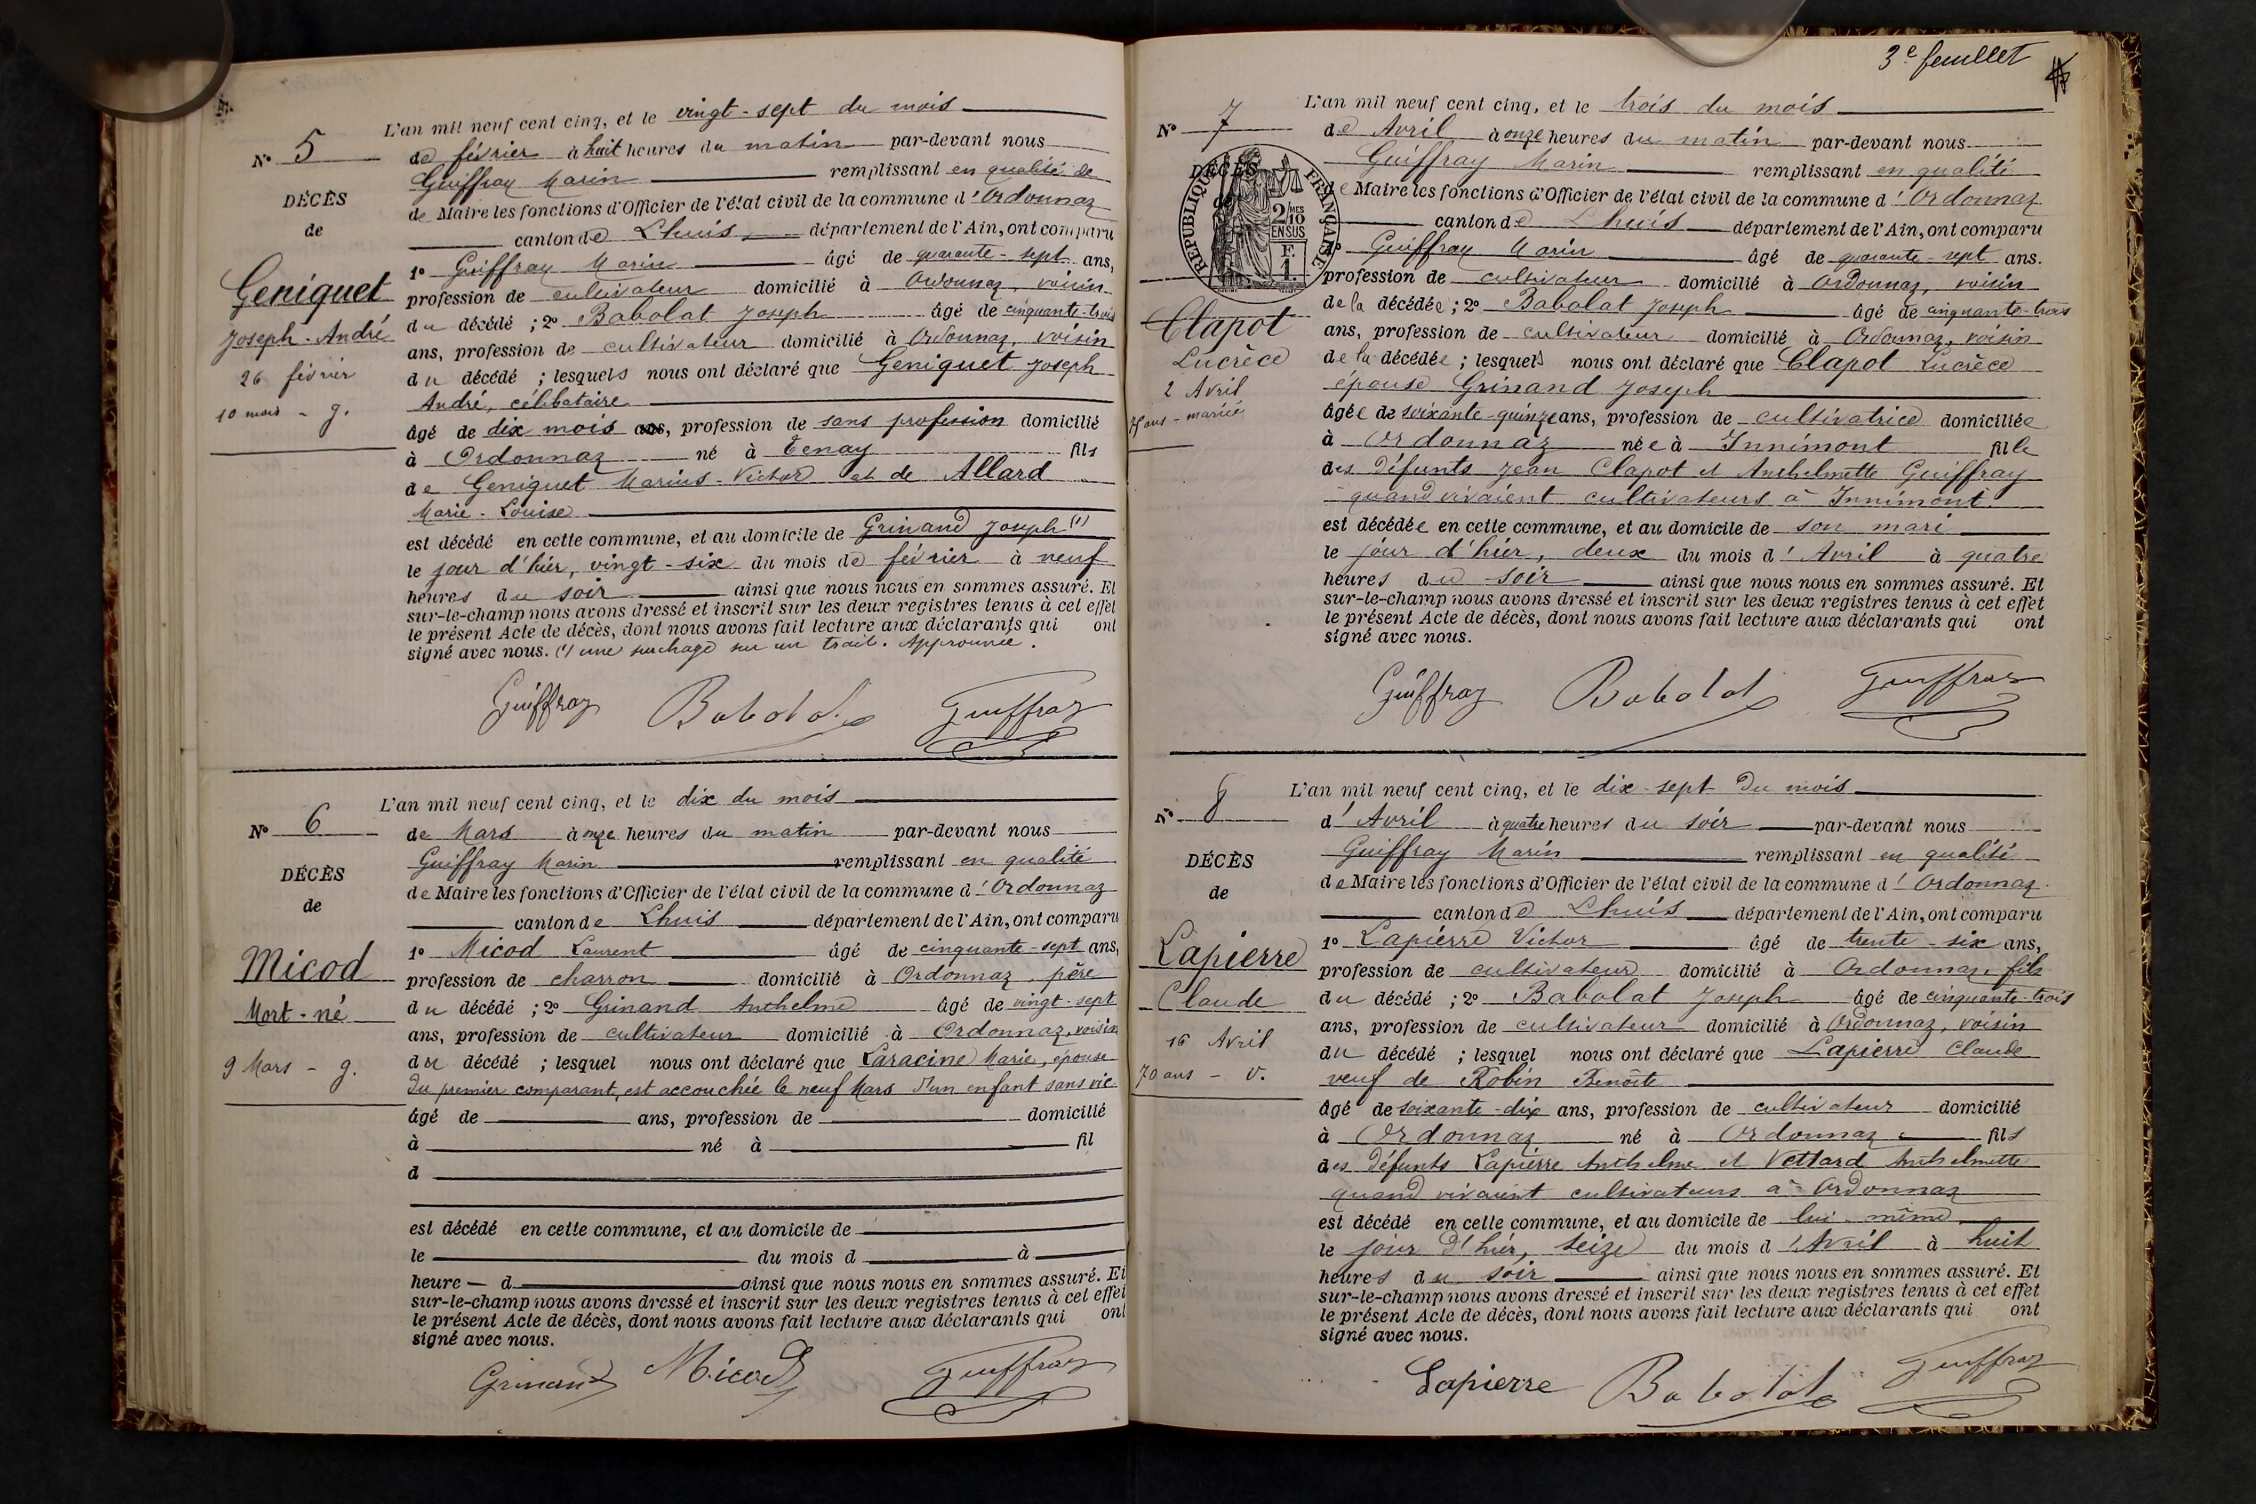 N° 5
DÉCÈS
de
Geniquet
Joseph-André
26 février
10 mois - g.
L'an mil neuf cent cinq, et le vingt-sept du mois
de février à huit heures du matin par-devant nous
Guiffray Marin remplissant en qualité de
de Maire les fonctions d'Officier de l'état civil de la commune d'Ordonnaz
canton de Lhuis, département de l'Ain, ont comparu
1° Guiffray Marin âgé de quarante-sept ans,
profession de cultivateur domicilié à Ordonnaz, voisin
du décédé ; 2° Babolat Joseph âgé de cinquante-trois
ans, profession de cultivateur domicilié à Ordonnaz, voisin
du décédé ; lesquels nous ont déclaré que Geniquet Joseph
André, célibataire
âgé de dix mois ans, profession de sans profession domicilié
à Ordonnaz né à Tenay fils
de Geniquet Marius-Victor et de Allard
Marie-Louise
est décédé en cette commune, et au domicile de Grinand Joseph (1)
le jour d'hier, vingt-six du mois de février à neuf
heures du soir ainsi que nous nous en sommes assuré. Et
sur-le-champ nous avons dressé et inscrit sur les deux registres tenus à cet effet
le présent Acte de décès, dont nous avons fait lecture aux déclarants qui ont
signé avec nous. (1) une surchage sur un trait. Approuvée.
Guiffray Babolat Guiffray
N° 6
DÉCÈS
de
Micod
Mort-né
9 Mars - g.
L'an mil neuf cent cinq, et le dix du mois
de Mars à onze heures du matin par-devant nous
Guiffray Marin remplissant en qualité
de Maire les fonctions d'Officier de l'état civil de la commune d'Ordonnaz
canton de Lhuis département de l'Ain, ont comparu
1° Micod Laurent âgé de cinquante-sept ans,
profession de charron domicilié à Ordonnaz, père
du décédé ; 2° Grinand Anthelme âgé de vingt-sept
ans, profession de cultivateur domicilié à Ordonnaz, voisin
du décédé ; lesquel nous ont déclaré que Laracine Marie, épouse
du premier comparant, est accouchée le neuf Mars d'un enfant sans vie.
âgé de ans, profession de domicilié
à né à fil
d
est décédé en cette commune, et au domicile de
le du mois d à
heure d ainsi que nous nous en sommes assuré. Et
sur-le-champ nous avons dressé et inscrit sur les deux registres tenus à cet effet
le présent Acte de décès, dont nous avons fait lecture aux déclarants qui ont
signé avec nous.
Grinand Micod Guiffray
3e feuillet
N° 7
DÉCÈS
de
RÉPUBLIQUE FRANÇAISE
2/10 MES
EN SUS
F.
1.
Clapot
Lucrèce
2 Avril
75 ans - mariée
L'an mil neuf cent cinq, et le trois du mois
de Avril à onze heures du matin par-devant nous
Guiffray Marin remplissant en qualité
de Maire les fonctions d'Officier de l'état civil de la commune d'Ordonnaz
canton de Lhuis département de l'Ain, ont comparu
1° Guiffray Marin âgé de quarante-sept ans.
profession de cultivateur domicilié à Ordonnaz, voisin
de la décédée ; 2° Babolat Joseph âgé de cinquante-trois
ans, profession de cultivateur domicilié à Ordonnaz, voisin
de la décédée ; lesquels nous ont déclaré que Clapot Lucrèce
épouse Grinand Joseph
âgée de soixante-quinze ans, profession de cultivatrice domiciliée
à Ordonnaz née à Innimont fille
des défunts Jean Clapot et Anthelmette Guiffray
quand vivaient cultivateurs à Innimont.
est décédée en cette commune, et au domicile de son mari
le jour d'hier, deux du mois d'Avril à quatre
heures du soir ainsi que nous nous en sommes assuré. Et
sur-le-champ nous avons dressé et inscrit sur les deux registres tenus à cet effet
le présent Acte de décès, dont nous avons fait lecture aux déclarants qui ont
signé avec nous.
Guiffray Babolat Guiffray
N° 8
DÉCÈS
de
Lapierre
Claude
16 Avril
70 ans - v.
L'an mil neuf cent cinq, et le dix-sept du mois
d'Avril à quatre heures du soir par-devant nous
Guiffray Marin remplissant en qualité
de Maire les fonctions d'Officier de l'état civil de la commune d'Ordonnaz.
canton de Lhuis département de l'Ain, ont comparu
1° Lapierre Victor âgé de trente-six ans,
profession de cultivateur domicilié à Ordonnaz, fils
du décédé ; 2° Babolat Joseph âgé de cinquante-trois
ans, profession de cultivateur domicilié à Ordonnaz, voisin
du décédé ; lesquel nous ont déclaré que Lapierre Claude
veuf de Robin Benoîte
âgé de soixante-dix ans, profession de cultivateur domicilié
à Ordonnaz né à Ordonnaz fils
des défunts Lapierre Anthelme et Vettard Anthelmette
quand vivaient cultivateurs à Ordonnaz
est décédé en cette commune, et au domicile de lui-même
le jour d'hier, seize du mois d'Avril à huit
heures du soir ainsi que nous nous en sommes assuré. Et
sur-le-champ nous avons dressé et inscrit sur les deux registres tenus à cet effet
le présent Acte de décès, dont nous avons fait lecture aux déclarants qui ont
signé avec nous.
Lapierre Babolat Guiffray